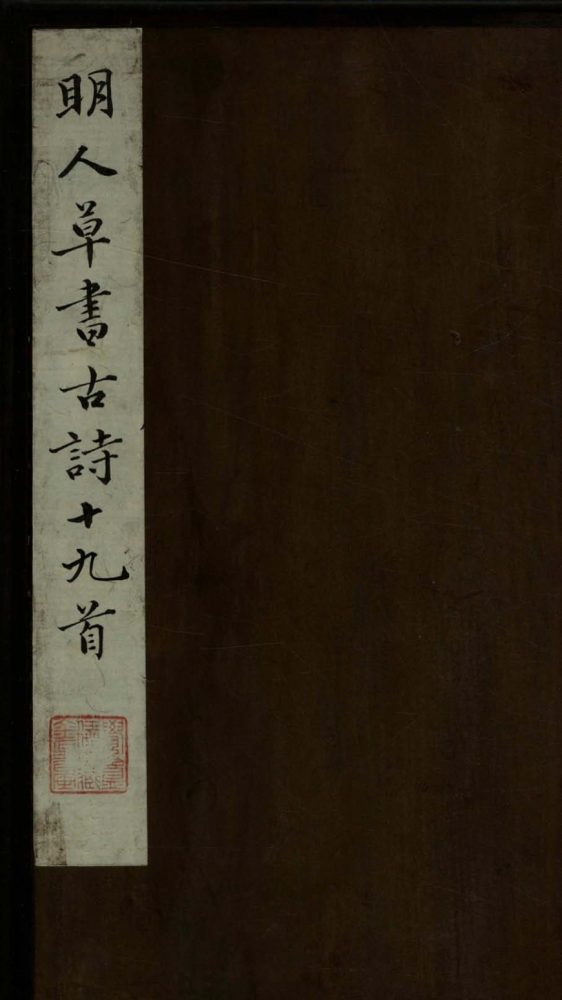 明人草書古詩十九首